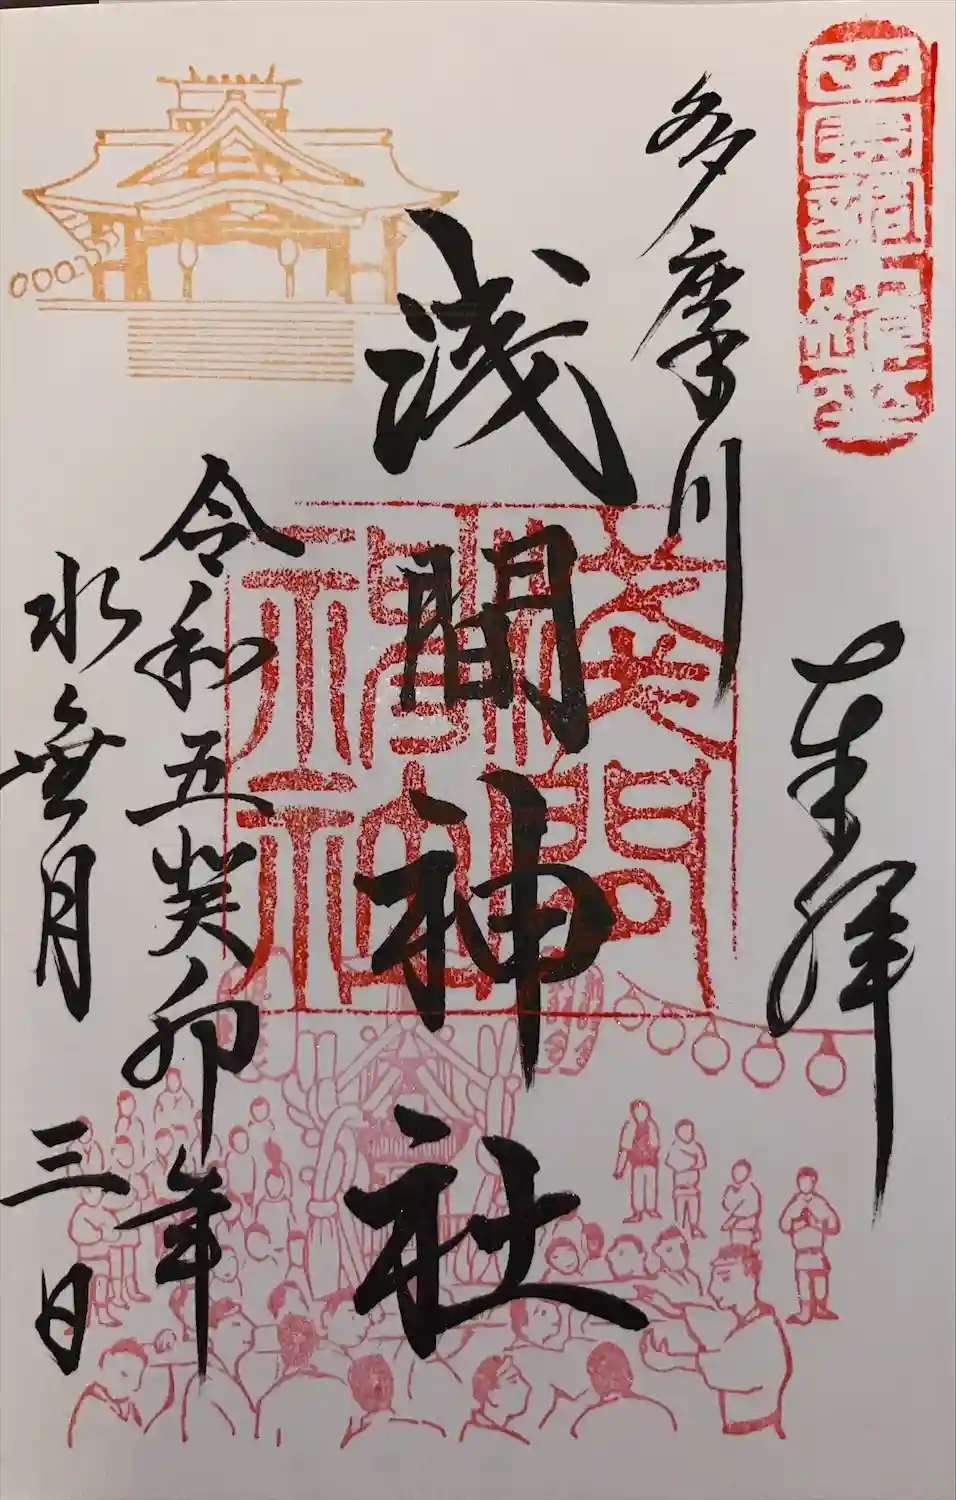 奉拝
多摩川
浅間神社
令和五癸卯年
水無月 三日